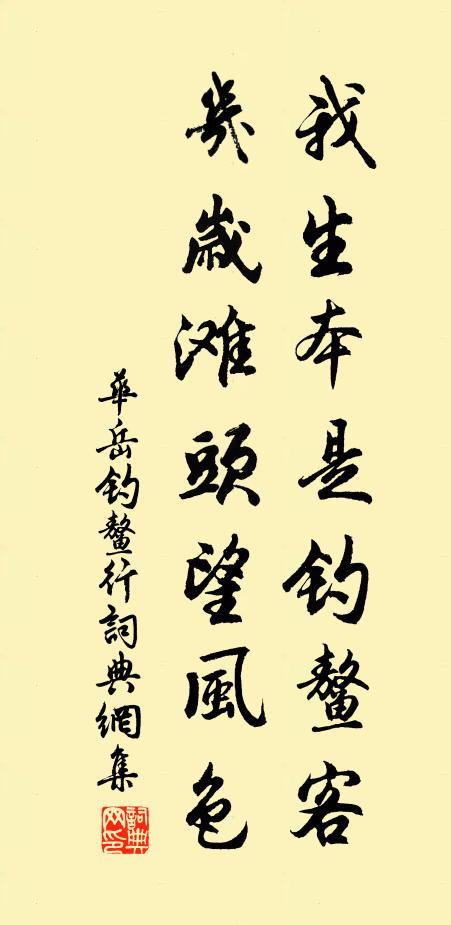 我生本是钓鳌客
幾歲滩頭望風色
華岳钓鳌行詞典網集
詞典网印